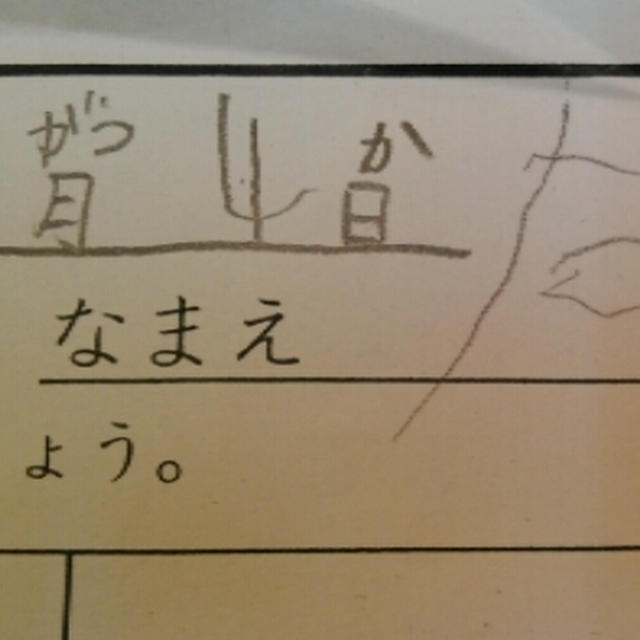 がつ か
月 4 日
なまえ
ょう。